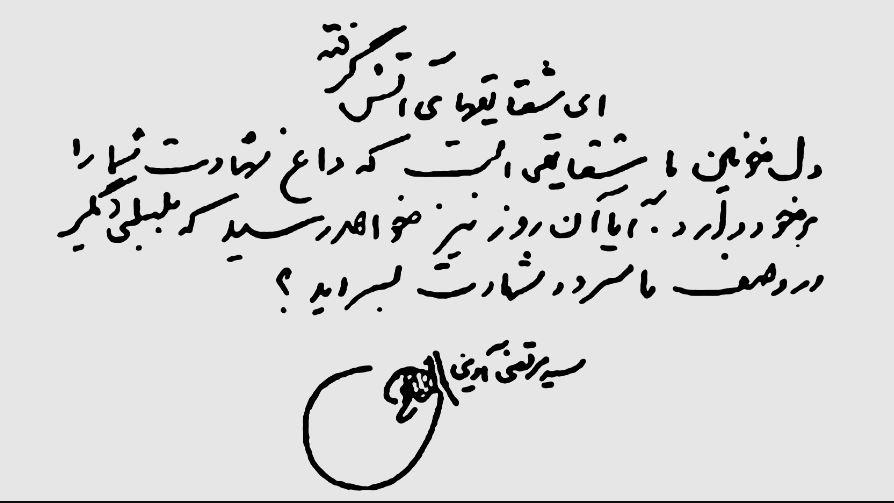 ای شقایقهای آتش گرفته
دل خونین ما شقایقی است که داغ شهادت شما را
بر خود دارد. آیا آن روز نیز خواهد رسید که بلبلی دیگر
در وصف ما سرود شهادت بسراید ؟
سید مرتضی آوینی